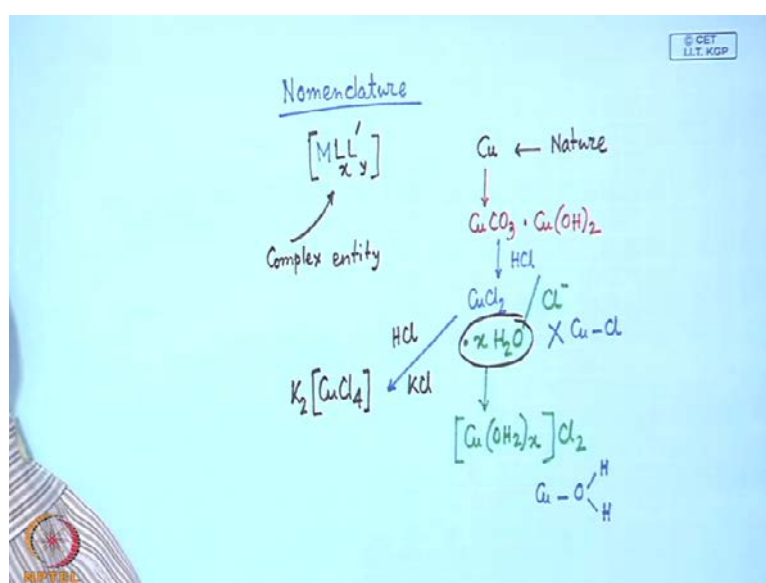 © CET
I.I.T. KGP
Nomenclature
[MLₓL'ᵧ]
Complex entity
Cu ← Nature
CuCO₃ · Cu(OH)₂
HCl
CuCl₂
Cl⁻
· x H₂O
X Cu–Cl
HCl
KCl
K₂[CuCl₄]
[Cu(OH₂)ₓ]Cl₂
Cu – O
H
H
NPTEL